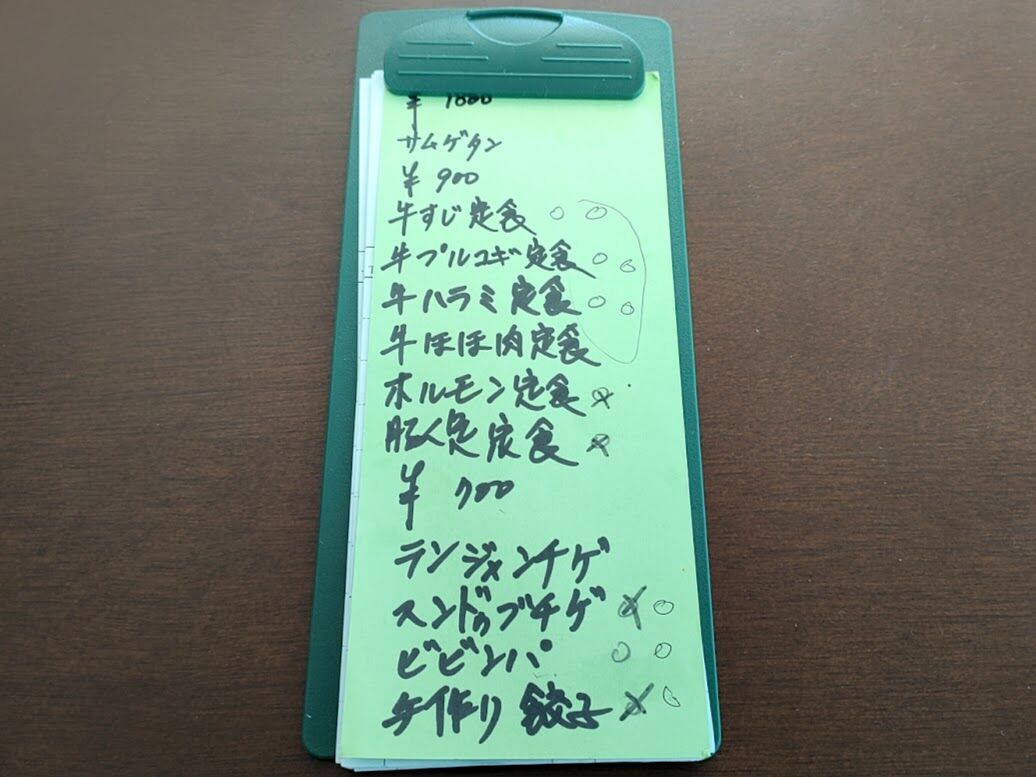 ¥ 1000
サムゲタン
¥ 900
牛すじ定食
牛プルコギ定食
牛ハラミ定食
牛ほほ肉定食
ホルモン定食
定食
¥ 700
ランジャンチゲ
スンドゥブチゲ
ビビンパ
手作り餃子